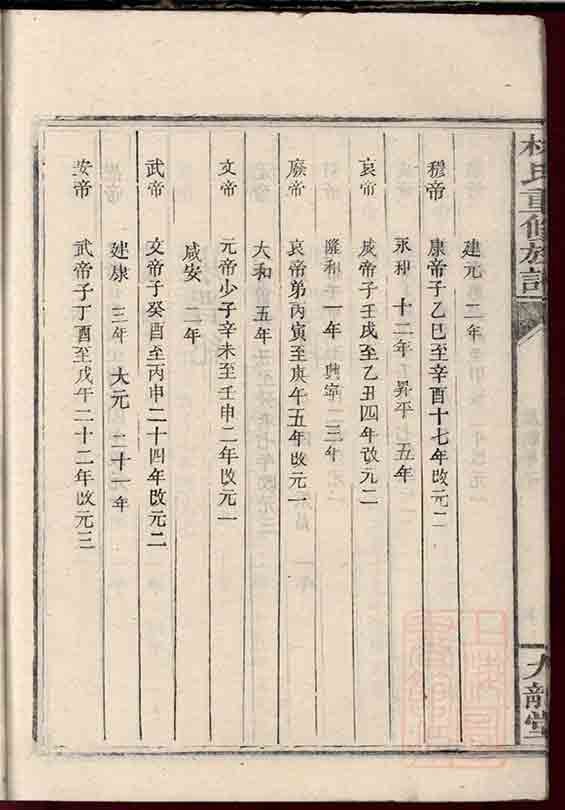 建元 二年
穆帝 康帝子乙巳至辛酉十七年改元二
永和 十二年 昇平 五年
哀帝 成帝子壬戌至乙丑四年改元二
隆和 一年 興寧 三年
廢帝 哀帝弟丙寅至庚午五年改元一
太和 五年
文帝 元帝少子辛未至壬申二年改元一
咸安 二年
武帝 文帝子癸酉至丙申二十四年改元二
建康 三年 大元 二十一年
安帝 武帝子丁酉至戊午二十二年改元三
氏重修族譜
九龍堂